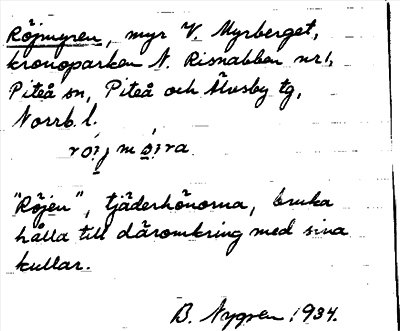 Röjmyren, myr V. Myrberget,
kronoparken N. Risnabben nr 1,
Piteå sn, Piteå och Älvsby tg,
Norrb. l.
"Röjen", tjäderhönorna, bruka
hålla till däromkring med sina
kullar.
B. Nygren 1934.